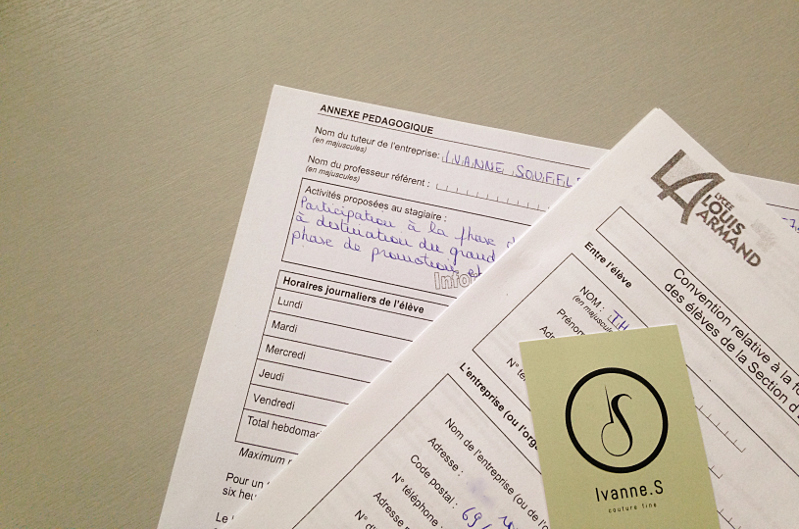 ANNEXE PEDAGOGIQUE
Nom du tuteur de l'entreprise: IVANNE SOUFFL
(en majuscules)
Nom du professeur référent :
(en majuscules)
Activités proposées au stagiaire :
Participation à la phase
à destination du grand
phase de promotion et
Info
Horaires journaliers de l'élève
Lundi
Mardi
Mercredi
Jeudi
Vendredi
Total hebdoma
Maximum
Pour un
six heu
Le
LA
LYCEE
LOUIS
ARMAND
Convention relative à la fo
des élèves de la Section d'
Entre l'élève
NOM :
(en majuscule
Prénom
Adr
N° té
L'entreprise (ou l'orga
Nom de l'entreprise (ou de l'o
Adresse :
Code postal : 69
N° téléphone
Adresse
N° d'
S
Ivanne.S
couture fine